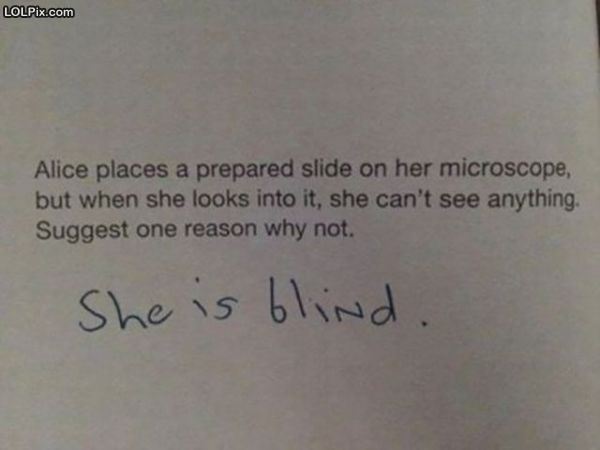 LOLPix.com
Alice places a prepared slide on her microscope,
but when she looks into it, she can't see anything.
Suggest one reason why not.
She is blind.